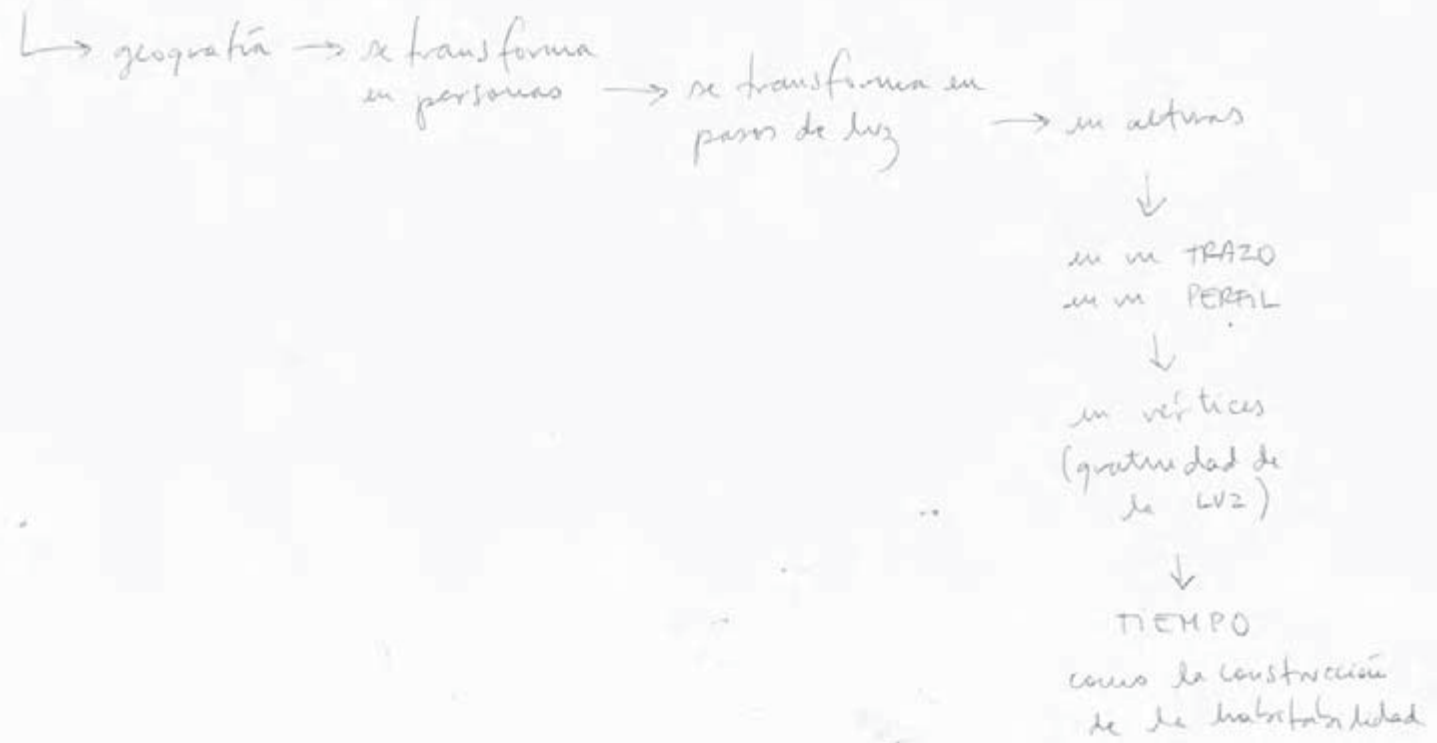 geografía → se transforma
en personas → se transforma en
pasos de luz → en alturas
↓
en un TRAZO
en un PERFIL
↓
en vértices
(gratuidad de
la LUZ)
↓
TIEMPO
como la construcción
de la habitabilidad